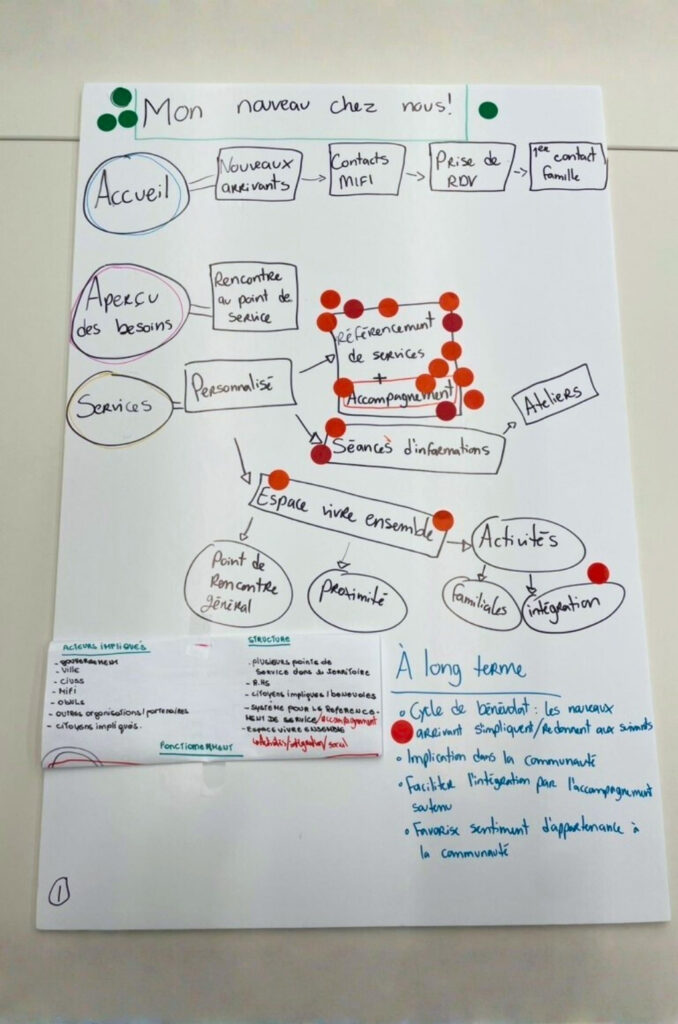 Mon nouveau chez nous!
Accueil
Nouveaux
arrivants
Contacts
MIFI
Prise de
RDV
1er contact
famille
Aperçu
des besoins
Rencontre
au point de
service
Services
Personnalisé
Référencement
de services
+
Accompagnement
Séances d'informations
Ateliers
Espace vivre ensemble
Point de
Rencontre
général
Proximité
Activités
familiales
intégration
ACTEURS IMPLIQUÉS
- GOUVERNEMENT
- Ville
- CIUSS
- MiFi
- OBNLS
- OUTRES ORGANISATIONS/PARTENAIRES
- CITOYENS IMPLIQUÉS.
STRUCTURE
. PLUSIEURS POINTS DE
SERVICE DANS LE TERRITOIRE
- R.HS
- CITOYENS IMPLIQUÉS/BÉNÉVOLES
- SYSTÈME POUR LE RÉFÉRENCE-
MENT DE SERVICE/accompagnement
- ESPACE VIVRE ENSEMBLE
↳ Activités/intégration/social
FONCTIONNEMENT
À long terme
• Cycle de bénévolat : les nouveaux
arrivant s'impliquent/Redonnent aux suivants
• Implication dans la communauté
• Faciliter l'intégration par l'accompagnement
soutenu
• Favorise sentiment d'appartenance à
la communauté
1